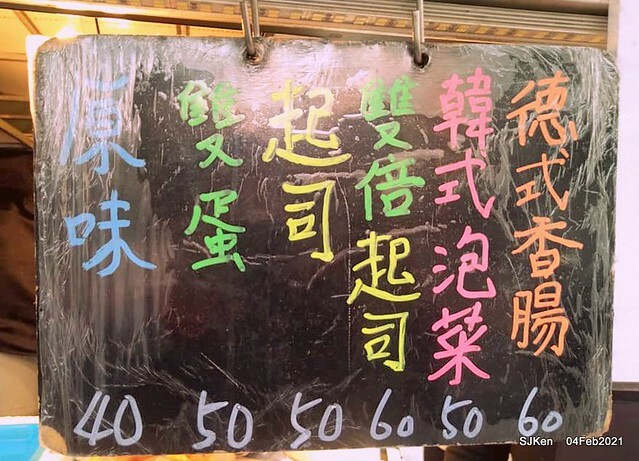 德式香腸 60
韓式泡菜 50
雙倍起司 60
起司 50
雙蛋 50
原味 40
SJKen 04Feb2021